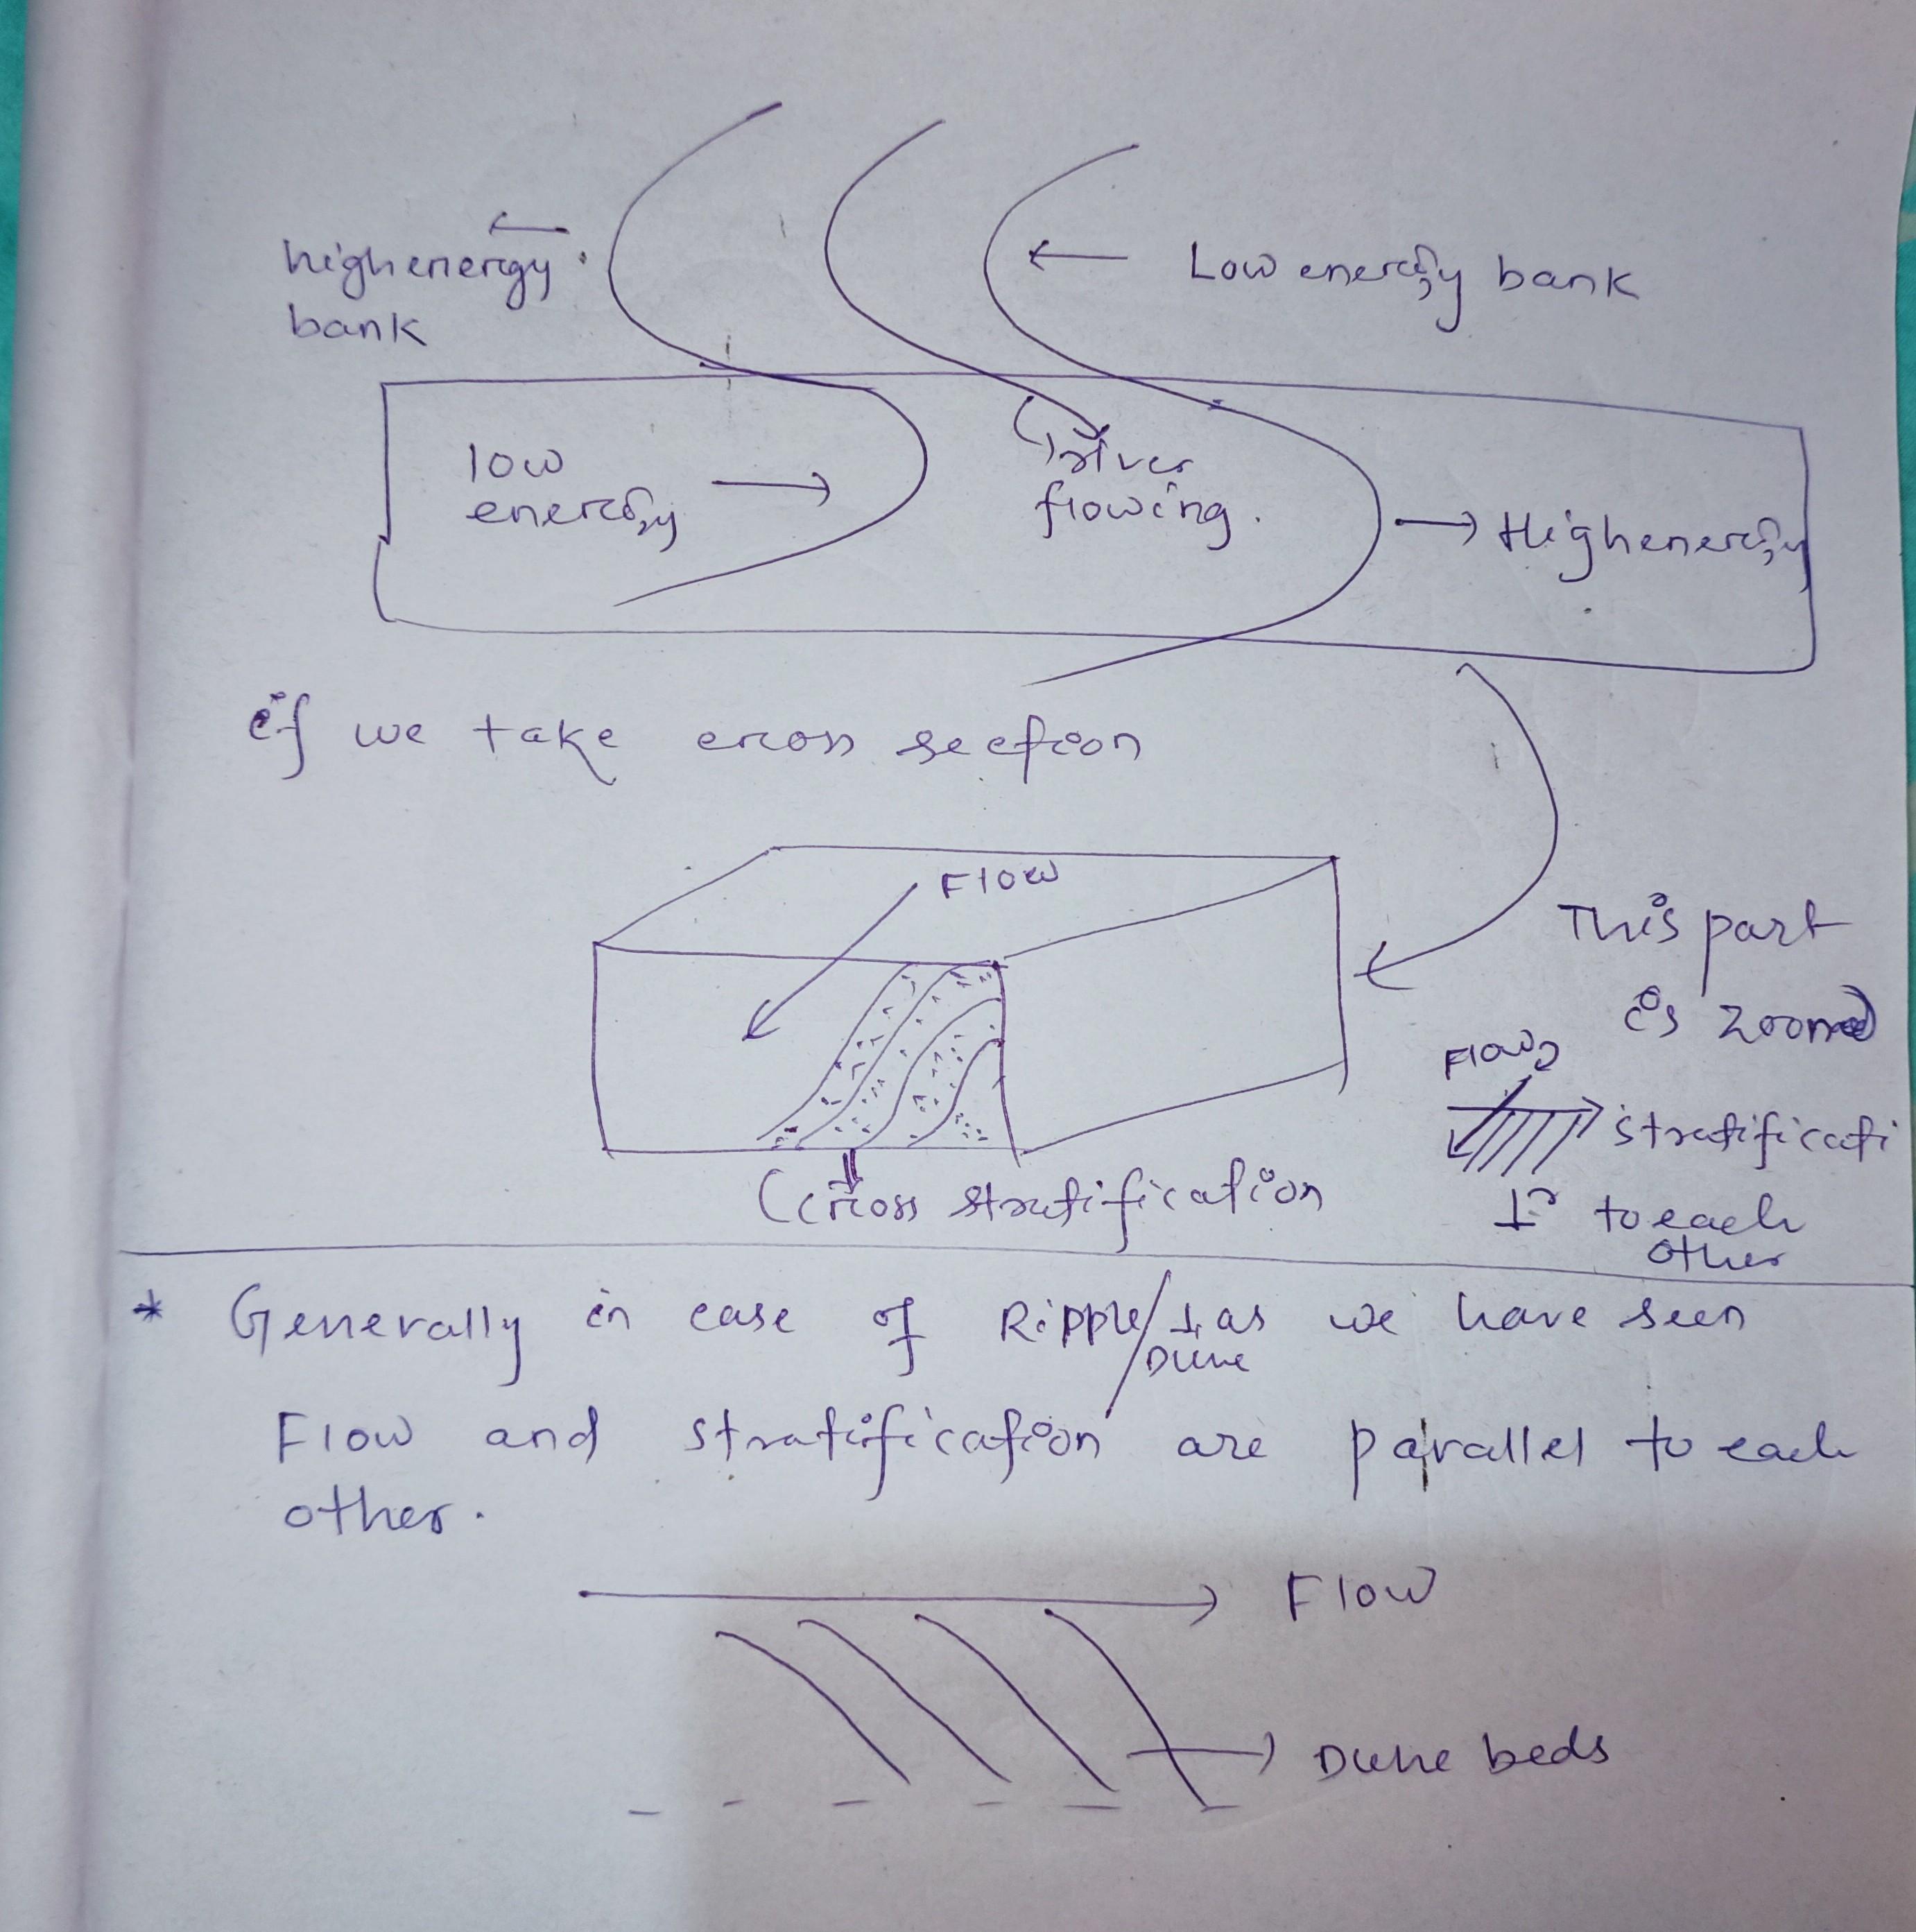 high energy
bank
Low energy bank
low
energy
river
flowing.
High energy
if we take cross section
Flow
This part
is zoomed
Flow
stratificati
⊥r to each
other
Cross stratification
* Generally in case of Ripple/Dune as we have seen
Flow and stratification are parallel to each
other.
Flow
Dune beds